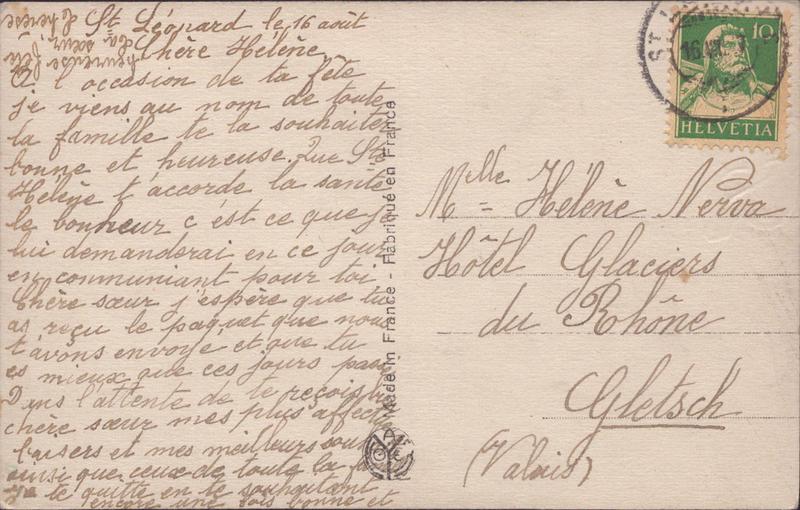 St Léonard le 16 août
Chère Hélène
A l'occasion de ta fête
je viens au nom de toute
la famille te la souhaiter
bonne et heureuse. Que Ste
Hélène t'accorde la santé
le bonheur c'est ce que je
lui demanderai en ce jour
en communiant pour toi
Chère sœur j'espère que tu
as reçu le paquet que nous
t'avons envoyé et que tu
es mieux que ces jours passé
Dans l'attente de te
chère sœur mes plus affect
baisers et mes meilleurs
ainsi que ceux de toute la
je te quitte en te souhaitant
encore une fois bonne et
heureuse fête
Ta sœur
Made in France - Fabriqué en France
ST
16
10
HELVETIA
Mlle Hélène Nerva
Hôtel Glaciers
du Rhône
Gletsch
(Valais)